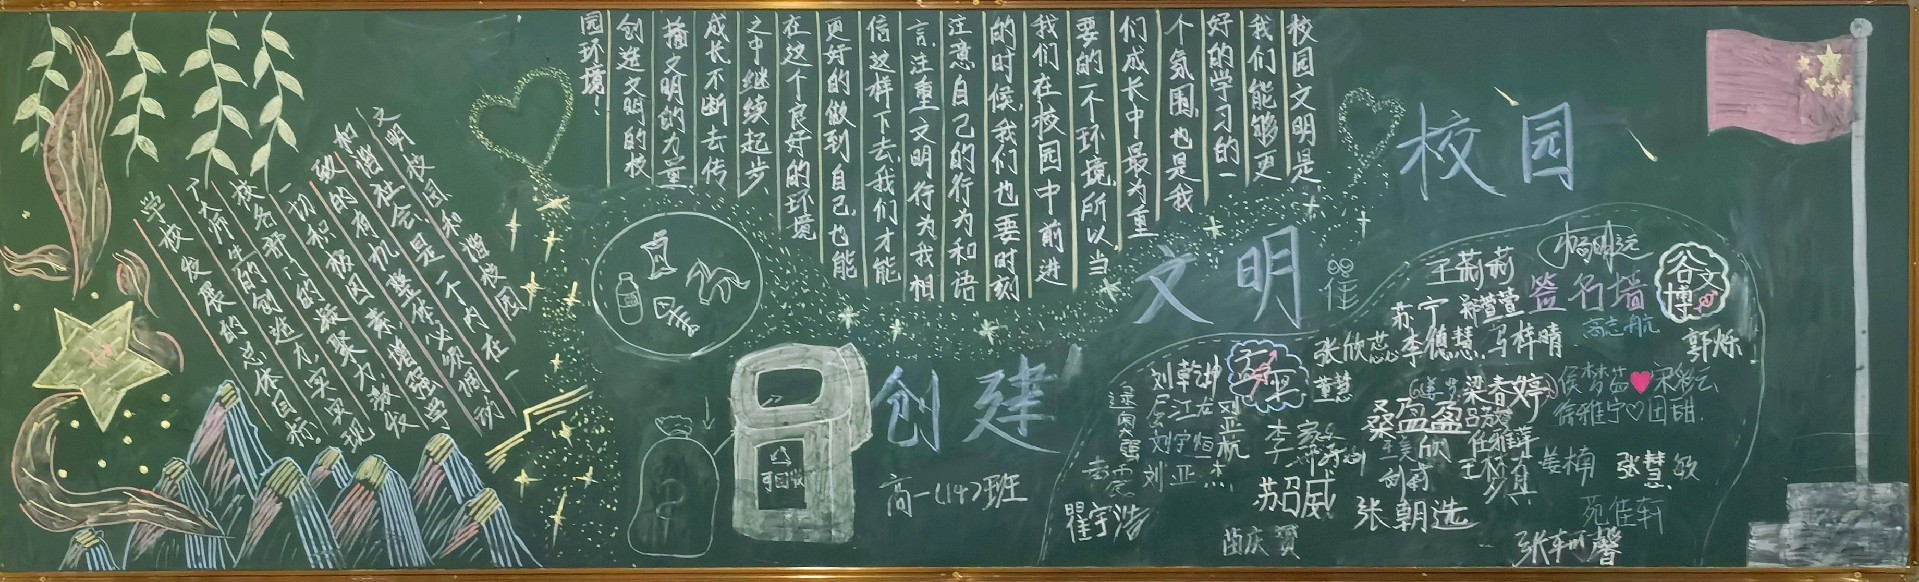 创建
文明
校园
高一(14)班
校园文明是
我们能够更
好的学习的一
个氛围,也是我
们成长中最为重
要的一个环境,所以,当
我们在校园中前进
的时候,我们也要时刻
注意自己的行为和语
言,注重文明行为,我相
信这样下去,我们才能
更好的做到自己,也能
在这个良好的环境
之中继续起步
成长不断去传
播文明的力量
创造文明的校
园环境!
文明校园和谐校园
和谐社会是一个内在一
致的有机整体必须调动
一切积极因素,增强学
校各部门的凝聚力,教收
广大师生的创造力,实现
学校发展的总体目标。
可回收
签名墙
王莉莉
谷文博
苏宁
郭烁
张欣蕊
李德慧
马梓晴
董慧
刘乾坤
梁春婷
桑盈盈
刘宇恒
刘亚杰
苏绍威
张朝选
瞿宇浩
姜楠
张慧敏
苑佳轩
徐雅宁♡田甜